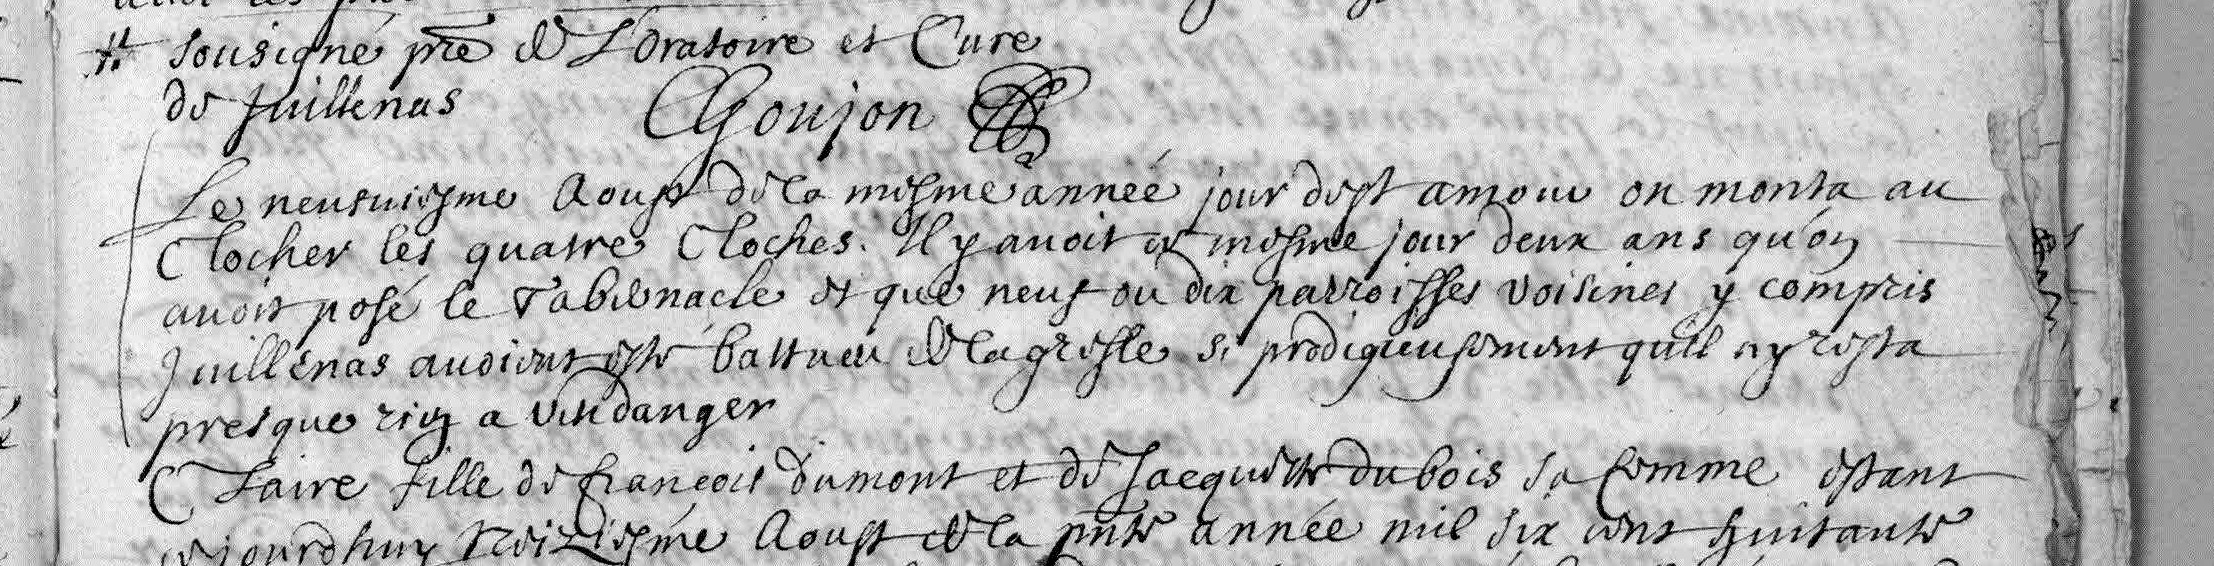 sousigné pre de L'oratoire et Cure
de Juillenas Goujon
Le neufuiesme Aoust de la mesme année jour de st amour on monta au
Clocher les quatre Cloches. Il y auoit ce mesme jour deux ans qu'on
auoit posé le Tabernacle et que neuf ou dix parroisses voisines y compris
Juillenas auoient esté battues de la gresle si prodigieusement qu'il n'y resta
presque rien a vendanger
Claire fille de françois dumont et de Jacquette dubois sa femme estant
ce jourdhuy treiziesme Aoust de la pnte année mil six cent huitante